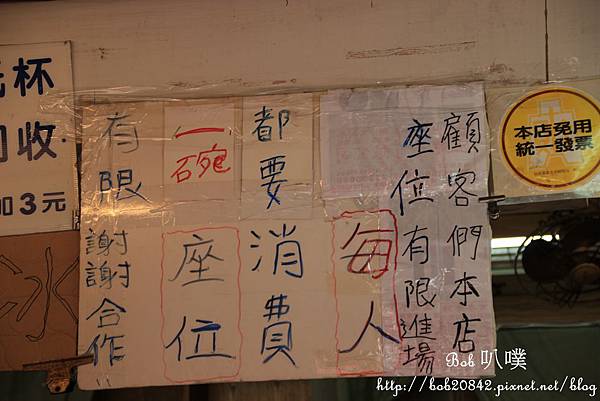 顧客們本店
座位有限進場
每人
都要消費
一碗座位
有限謝謝合作
本店免用
統一發票
杯
回收
加3元
冰
Bob 叭噗
http://bob20842.pixnet.net/blog